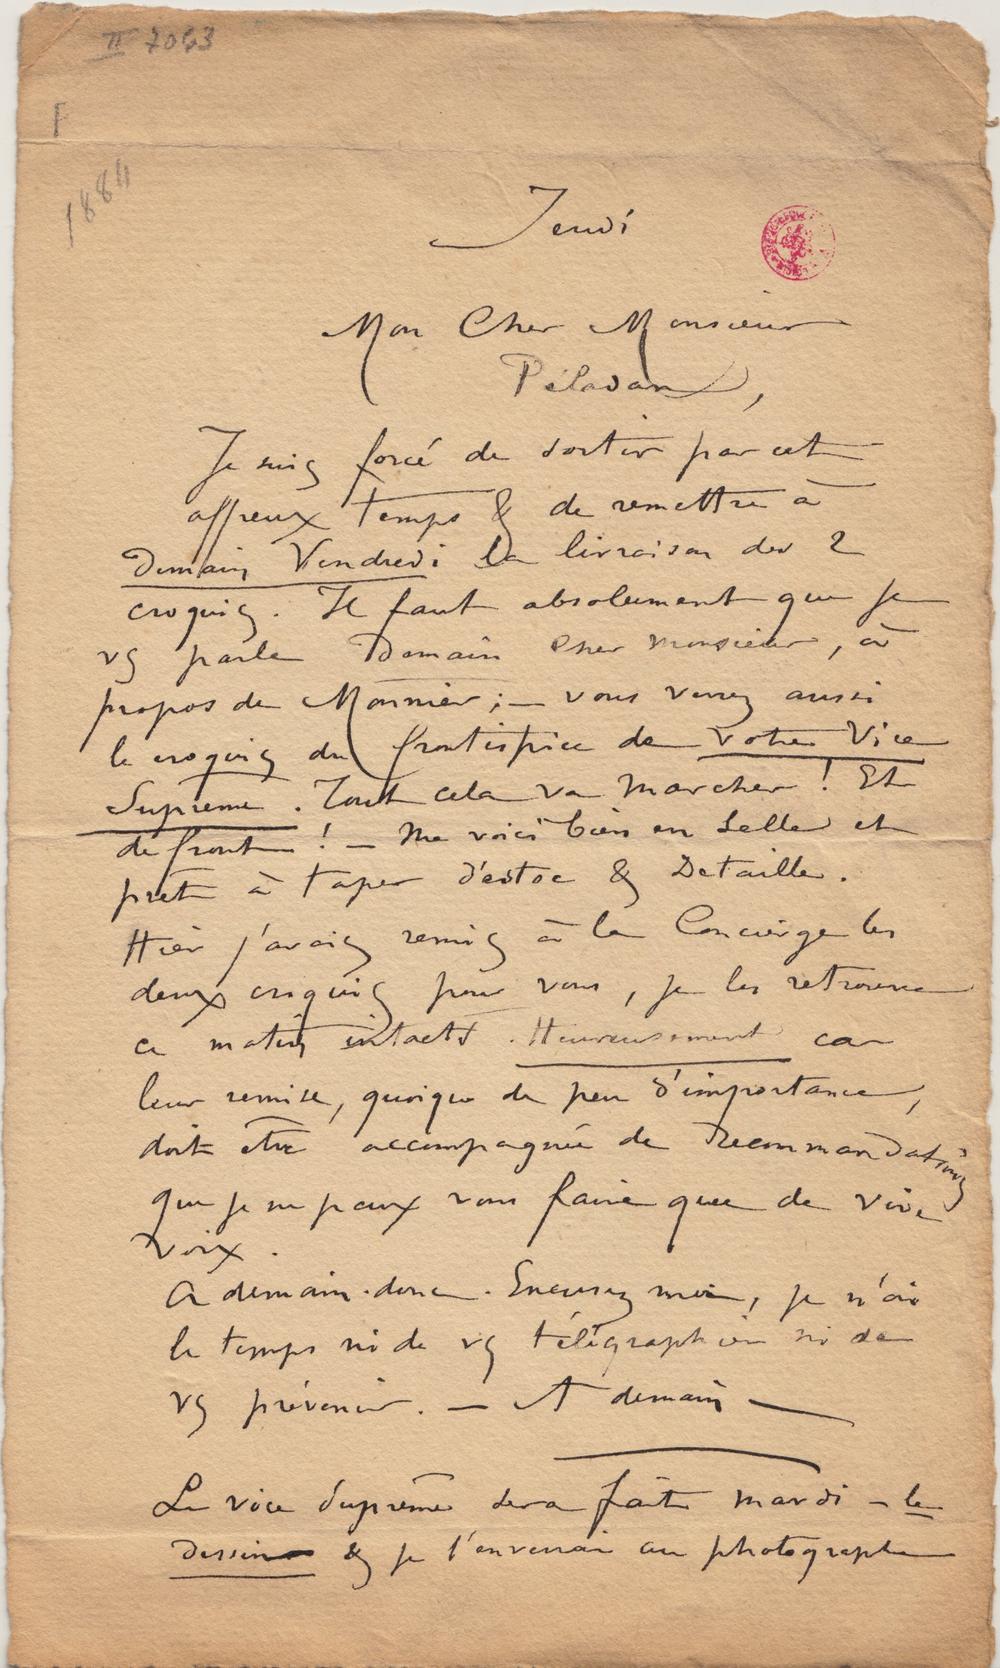 II 7043
1884
Jeudi
Mon Cher Monsieur
Péladan,
Je suis forcé de sortir par cet
affreux temps & de remettre à
Demain Vendredi la livraison des 2
croquis. Il faut absolument que je
vs parle Demain Cher Monsieur, à
propos de Monnier; — vous verrez aussi
le croquis du frontispice de votre Vice
Suprême. Tout cela va marcher ! Et
de front ! — Me voici bien en selle et
prêt à taper d'estoc & Detaille.
Hier j'avais remis à la Concierge les
deux croquis pour vous, je les retrouve
ce matin intacts. Heureusement car
leur remise, quoique de peu d'importance,
doit être accompagnée de Recommandations
que je ne peux vous faire que de vive
voix.
A demain donc. Excusez moi, je n'ai
le temps ni de vs télégraphier ni de
vs prévenir. — A demain —
Le vice Suprême sera fait mardi — le
dessin & je l'enverrai au photographe